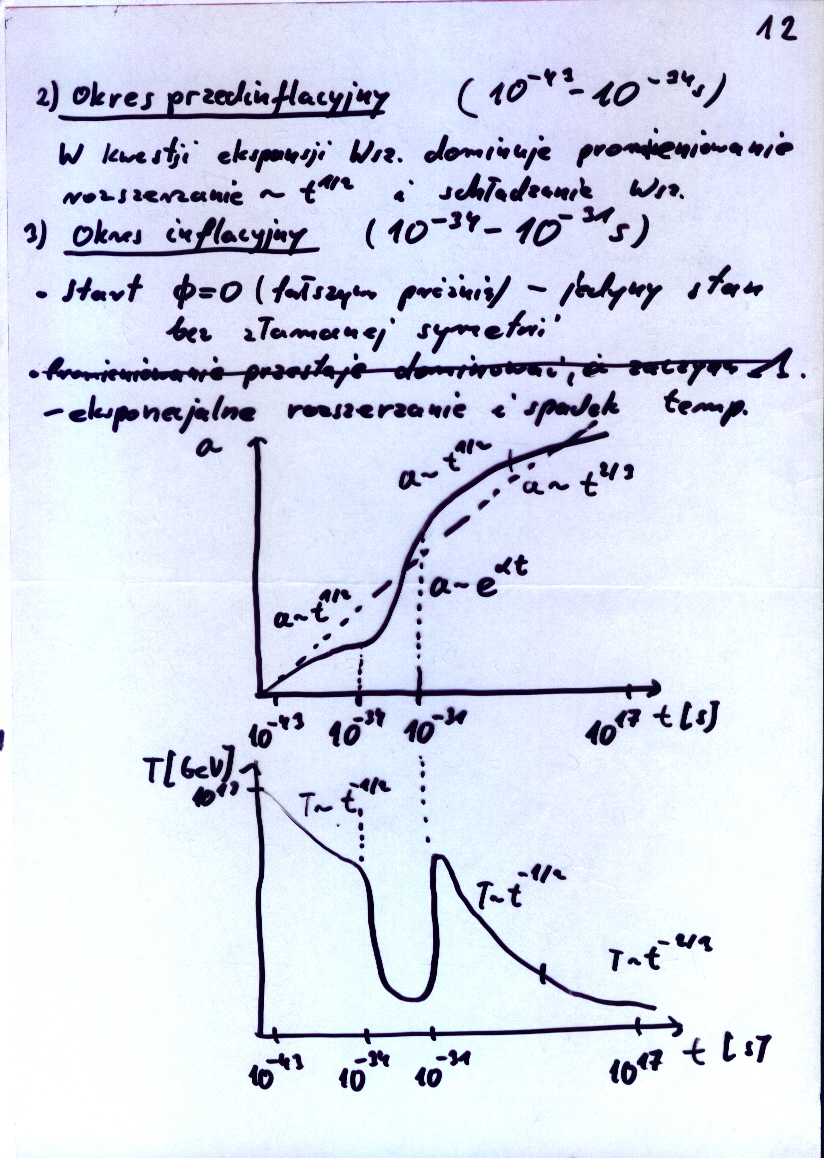 12
2) Okres przedinflacyjny (10^-43 - 10^-34 s)
W kwestji ekspansji Wsz. dominuje promieniowanie
rozszerzanie ~ t^1/2 i schładzanie Wsz.
3) Okres inflacyjny (10^-34 - 10^-31 s)
• start ϕ=0 (fałszywa próżnia) - jedyny stan
bez złamanej symetrii
• Promieniowanie przestaje dominować, a zaczyna Λ.
- eksponecjalne rozszerzanie i spadek temp.
a
a~t^1/2
a~t^2/3
a~e^αt
a~t^1/2
10^-43 10^-34 10^-31 10^17 t [s]
T[GeV]
10^19
T~t^-1/2
T~t^-1/2
T~t^-2/3
10^-43 10^-34 10^-31 10^17 t [s]